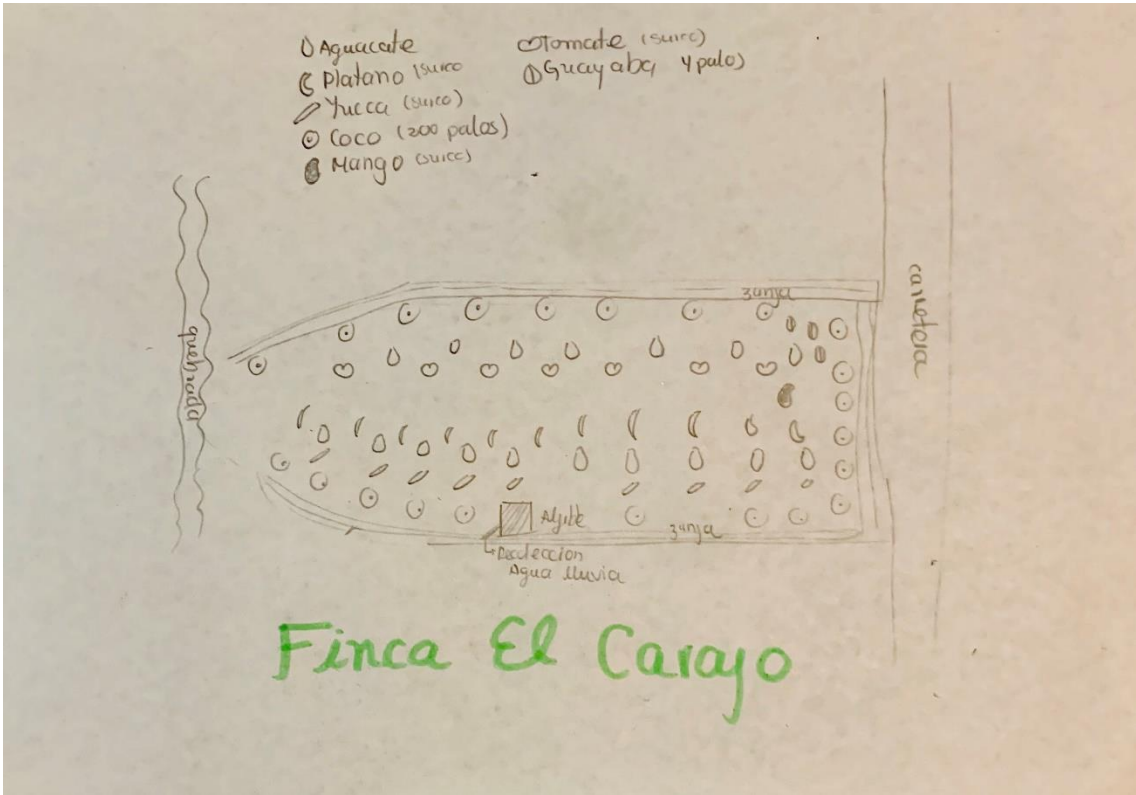 Aguacate
Platano (surco
Yucca (surco)
Coco (200 palos)
Mango (surco)
Tomate (surco)
Guayaba 4 palo)
zanja
carretera
quebrada
Aljibe
zanja
Recoleccion
Agua lluvia
Finca El Carajo